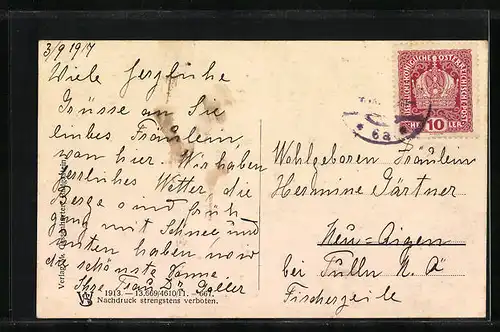 3/9 1917
Viele herzliche
Grüsse an Sie
liebes Fräulein,
von hier. Wir haben
herrliches Wetter, die
Berge sind früh
ganz mit Schnee und
unten haben wir
die schönste Sonne
Ihre Frau Dr.
KAISERLICHE KÖNIGLICHE ÖSTERREICHISCHE POST
HELLER 10 HELLER
* 6a *
Wohlgeboren Fräulein
Hermine Gärtner
Neu-Aigen
bei Tulln N. Ö
Fischerzeile
Verlag
1913. — 13.669/4610/11. — 661.
Nachdruck strengstens verboten.